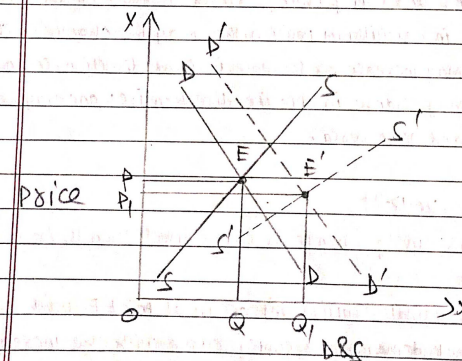 X
D'
D
S
E
E'
S'
P
Price
P1
S'
S
D
D'
O
Q
Q1
X
D&S